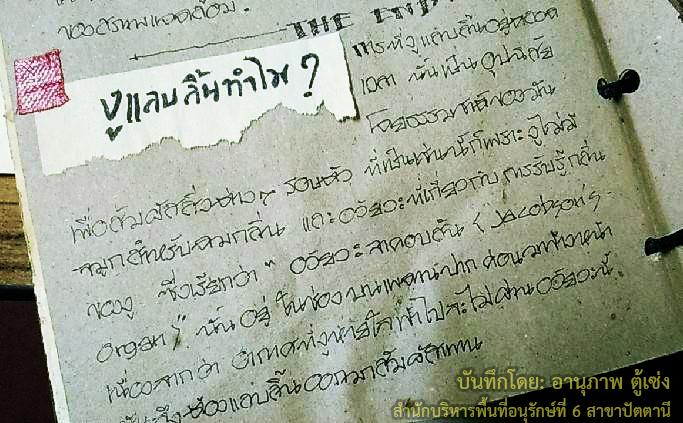 ของสภาพแวดล้อม.
THE END
งูแลบลิ้นทำไม?
การที่งูแลบลิ้นอยู่ตลอด
เวลา นั้นเป็นอุปนิสัย
โดยธรรมชาติของมัน
เพื่อสัมผัสสิ่งต่างๆ รอบตัว ที่เป็นเช่นนี้ก็เพราะงูไม่มี
จมูกสำหรับดมกลิ่น และอวัยวะที่เกี่ยวกับการรับรู้กลิ่น
ของงู ซึ่งเรียกว่า " อวัยวะจาคอบสัน ( Jacobson's
Organ )" นั้นอยู่ในช่องบนเพดานปาก ค่อนมาทางหน้า
เนื่องจากว่า อากาศที่งูหายใจเข้าไปจะไม่ผ่านอวัยวะนี้
จึงต้องแลบลิ้นออกมาสัมผัสแทน
บันทึกโดย: อานุภาพ ตู้เซ่ง
สำนักบริหารพื้นที่อนุรักษ์ที่ 6 สาขาปัตตานี